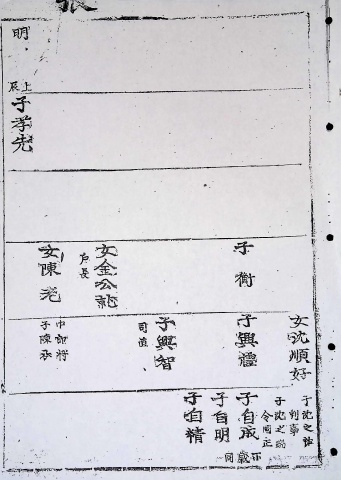 張
明
上辰
子孝先
子衡
女金公
戶長
女陳
中郎將
子陳永
女沈順好
子沈之
判事
子沈之
令同正
子興禮
子興智
司直
子自成
子自明
子自精